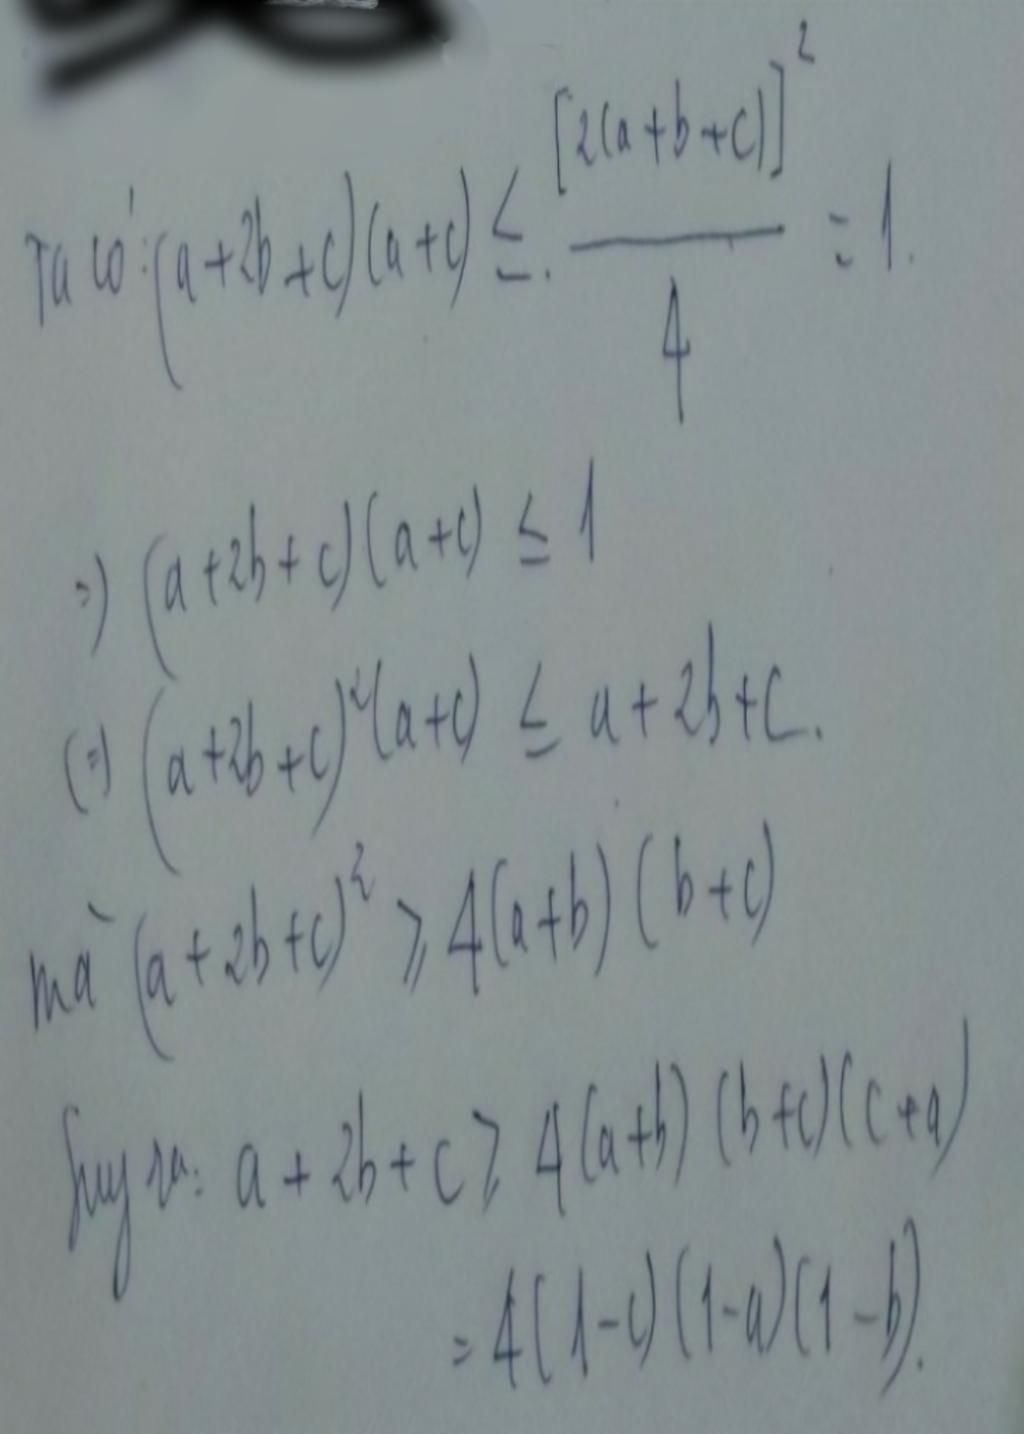 Ta có: (a+2b+c)(a+c) ≤ [2(a+b+c)]²/4 = 1.
=) (a+2b+c)(a+c) ≤ 1
(=) (a+2b+c)²(a+c) ≤ a+2b+c.
mà (a+2b+c)² ≥ 4(a+b)(b+c)
Suy ra: a+2b+c ≥ 4(a+b)(b+c)(c+a)
= 4(1-c)(1-a)(1-b).